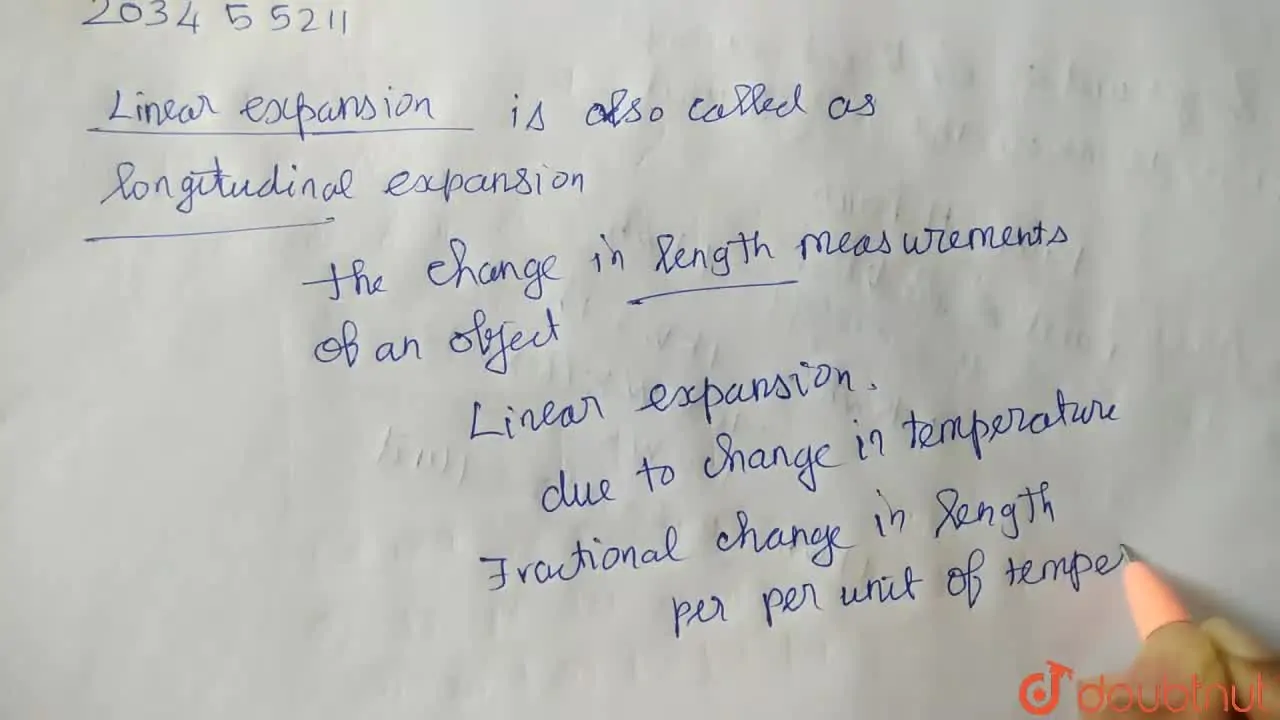 2034 5 5211
Linear expansion is also called as
longitudinal expansion
the change in length measurements
of an object
Linear expansion.
due to change in temperature
Fractional change in length
per per unit of temper
doubtnut